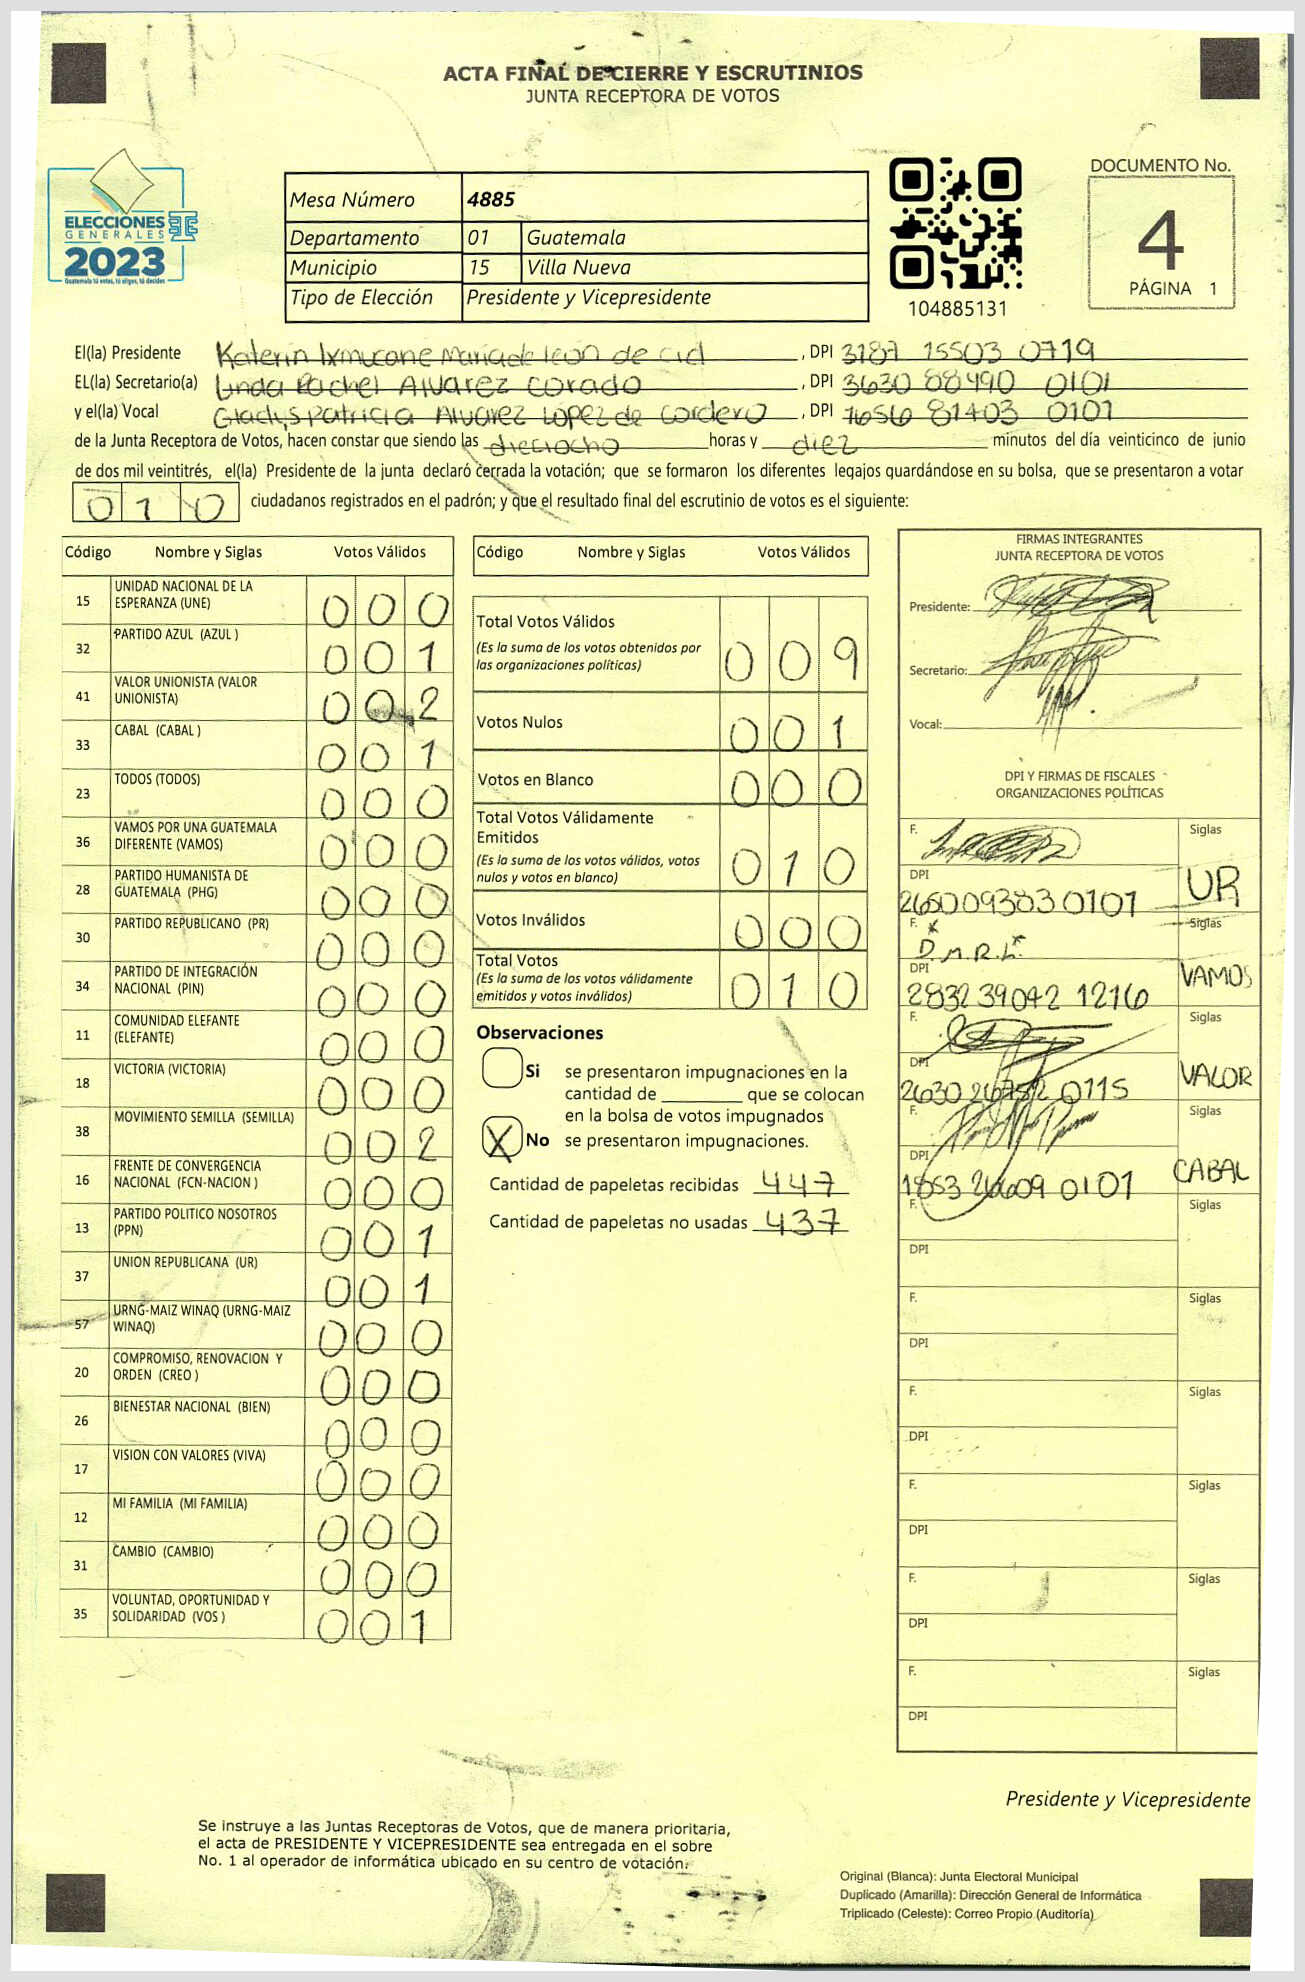 ACTA FINAL DE CIERRE Y ESCRUTINIOS
JUNTA RECEPTORA DE VOTOS
ELECCIONES
GENERALES
2023
Guatemala tú votas, tú eliges, tú decides
Mesa Número 4885
Departamento 01 Guatemala
Municipio 15 Villa Nueva
Tipo de Elección Presidente y Vicepresidente
104885131
DOCUMENTO No.
4
PÁGINA 1
El(la) Presidente Katerin Ixmucane Maria de león de cid , DPI 3187 15503 0719
EL(la) Secretario(a) Linda Rachel Alvarez Corado , DPI 3630 88490 0101
y el(la) Vocal Gladys Patricia Alvarez López de Cordero , DPI 1656 81403 0101
de la Junta Receptora de Votos, hacen constar que siendo las dieciocho horas y diez minutos del día veinticinco de junio
de dos mil veintitrés, el(la) Presidente de la junta declaró cerrada la votación; que se formaron los diferentes legajos guardándose en su bolsa, que se presentaron a votar
010 ciudadanos registrados en el padrón; y que el resultado final del escrutinio de votos es el siguiente:
Código Nombre y Siglas Votos Válidos
15 UNIDAD NACIONAL DE LA ESPERANZA (UNE) 000
32 PARTIDO AZUL (AZUL ) 001
41 VALOR UNIONISTA (VALOR UNIONISTA) 002
33 CABAL (CABAL ) 001
23 TODOS (TODOS) 000
36 VAMOS POR UNA GUATEMALA DIFERENTE (VAMOS) 000
28 PARTIDO HUMANISTA DE GUATEMALA (PHG) 000
30 PARTIDO REPUBLICANO (PR) 000
34 PARTIDO DE INTEGRACIÓN NACIONAL (PIN) 000
11 COMUNIDAD ELEFANTE (ELEFANTE) 000
18 VICTORIA (VICTORIA) 000
38 MOVIMIENTO SEMILLA (SEMILLA) 002
16 FRENTE DE CONVERGENCIA NACIONAL (FCN-NACION ) 000
13 PARTIDO POLITICO NOSOTROS (PPN) 001
37 UNION REPUBLICANA (UR) 001
57 URNG-MAIZ WINAQ (URNG-MAIZ WINAQ) 000
20 COMPROMISO, RENOVACION Y ORDEN (CREO ) 000
26 BIENESTAR NACIONAL (BIEN) 000
17 VISION CON VALORES (VIVA) 000
12 MI FAMILIA (MI FAMILIA) 000
31 CAMBIO (CAMBIO) 000
35 VOLUNTAD, OPORTUNIDAD Y SOLIDARIDAD (VOS ) 001
Código Nombre y Siglas Votos Válidos
Total Votos Válidos 009
(Es la suma de los votos obtenidos por
las organizaciones políticas)
Votos Nulos 001
Votos en Blanco 000
Total Votos Válidamente
Emitidos 010
(Es la suma de los votos válidos, votos
nulos y votos en blanco)
Votos Inválidos 000
Total Votos 010
(Es la suma de los votos válidamente
emitidos y votos inválidos)
Observaciones
Si se presentaron impugnaciones en la
cantidad de ________ que se colocan
en la bolsa de votos impugnados
X No se presentaron impugnaciones.
Cantidad de papeletas recibidas 447
Cantidad de papeletas no usadas 437
FIRMAS INTEGRANTES
JUNTA RECEPTORA DE VOTOS
Presidente:
Secretario:
Vocal:
DPI Y FIRMAS DE FISCALES
ORGANIZACIONES POLÍTICAS
F. Siglas
DPI UR
2650093830101
F. Siglas
D.M.R.L.
DPI VAMOS
2832 39042 1216
F. Siglas
DPI VALOR
2630 26752 0115
F. Siglas
DPI CABAL
1853 26609 0101
F. Siglas
DPI
F. Siglas
DPI
F. Siglas
DPI
F. Siglas
DPI
F. Siglas
DPI
F. Siglas
DPI
Presidente y Vicepresidente
Se instruye a las Juntas Receptoras de Votos, que de manera prioritaria,
el acta de PRESIDENTE Y VICEPRESIDENTE sea entregada en el sobre
No. 1 al operador de informática ubicado en su centro de votación.
Original (Blanca): Junta Electoral Municipal
Duplicado (Amarilla): Dirección General de Informática
Triplicado (Celeste): Correo Propio (Auditoría)